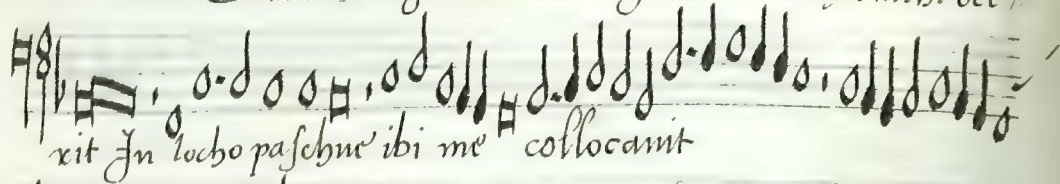 xit In locho paschue ibi me collocauit